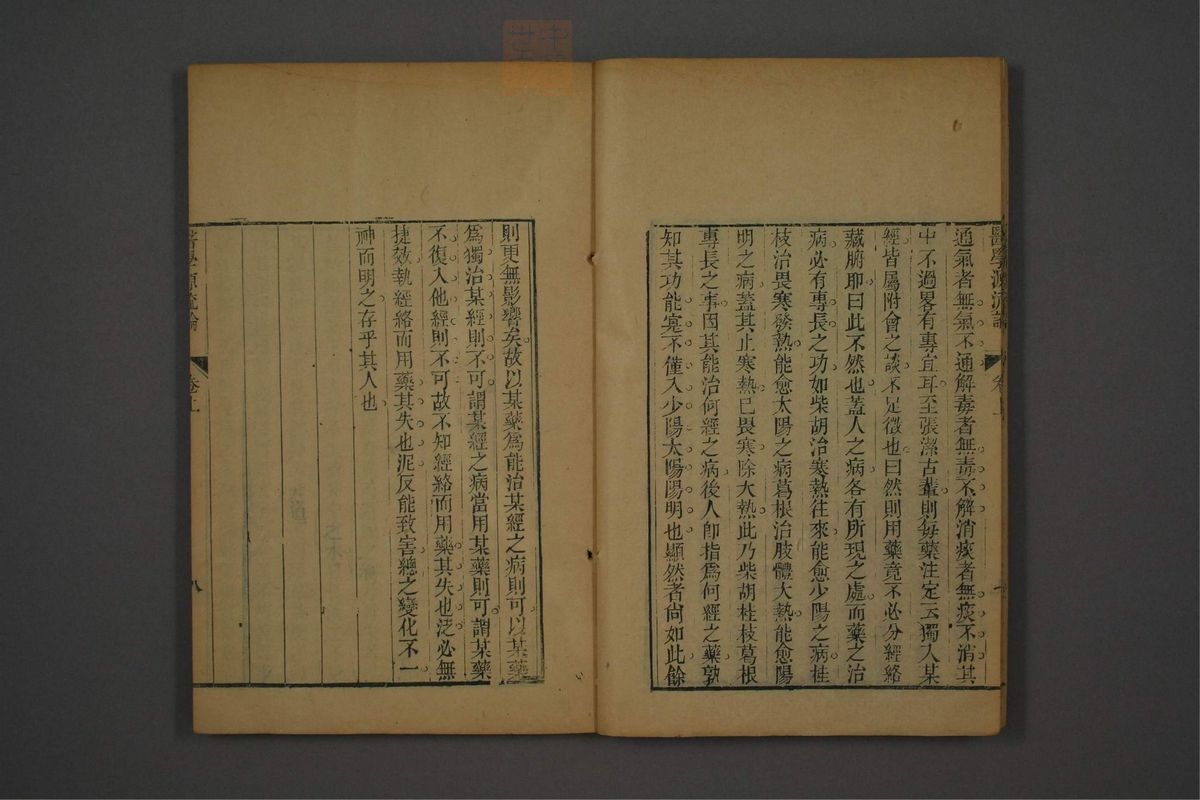 醫學源流論
卷上
通氣者無氣不通解毒者無毒不解消痰者無痰不消其
中不過畧有專宜耳至張潔古輩則每藥注定云獨入某
經皆屬附會之談不足徵也曰然則用藥竟不必分經絡
藏腑耶曰此不然也蓋人之病各有所現之處而藥之治
病必有專長之功如柴胡治寒熱往來能愈少陽之病桂
枝治畏寒發熱能愈太陽之病葛根治肢體大熱能愈陽
明之病蓋其止寒熱已畏寒除大熱此乃柴胡桂枝葛根
專長之事因其能治何經之病後人即指爲何經之藥孰
知其功能寔不僅入少陽太陽陽明也顯然者尚如此餘
則更無影響矣故以某藥爲能治某經之病則可以某藥
爲獨治某經則不可謂某經之病當用某藥則可謂某藥
不復入他經則不可故不知經絡而用藥其失也泛必無
捷效執經絡而用藥其失也泥反能致害總之變化不一
神而明之存乎其人也
醫學源流論
卷上
八